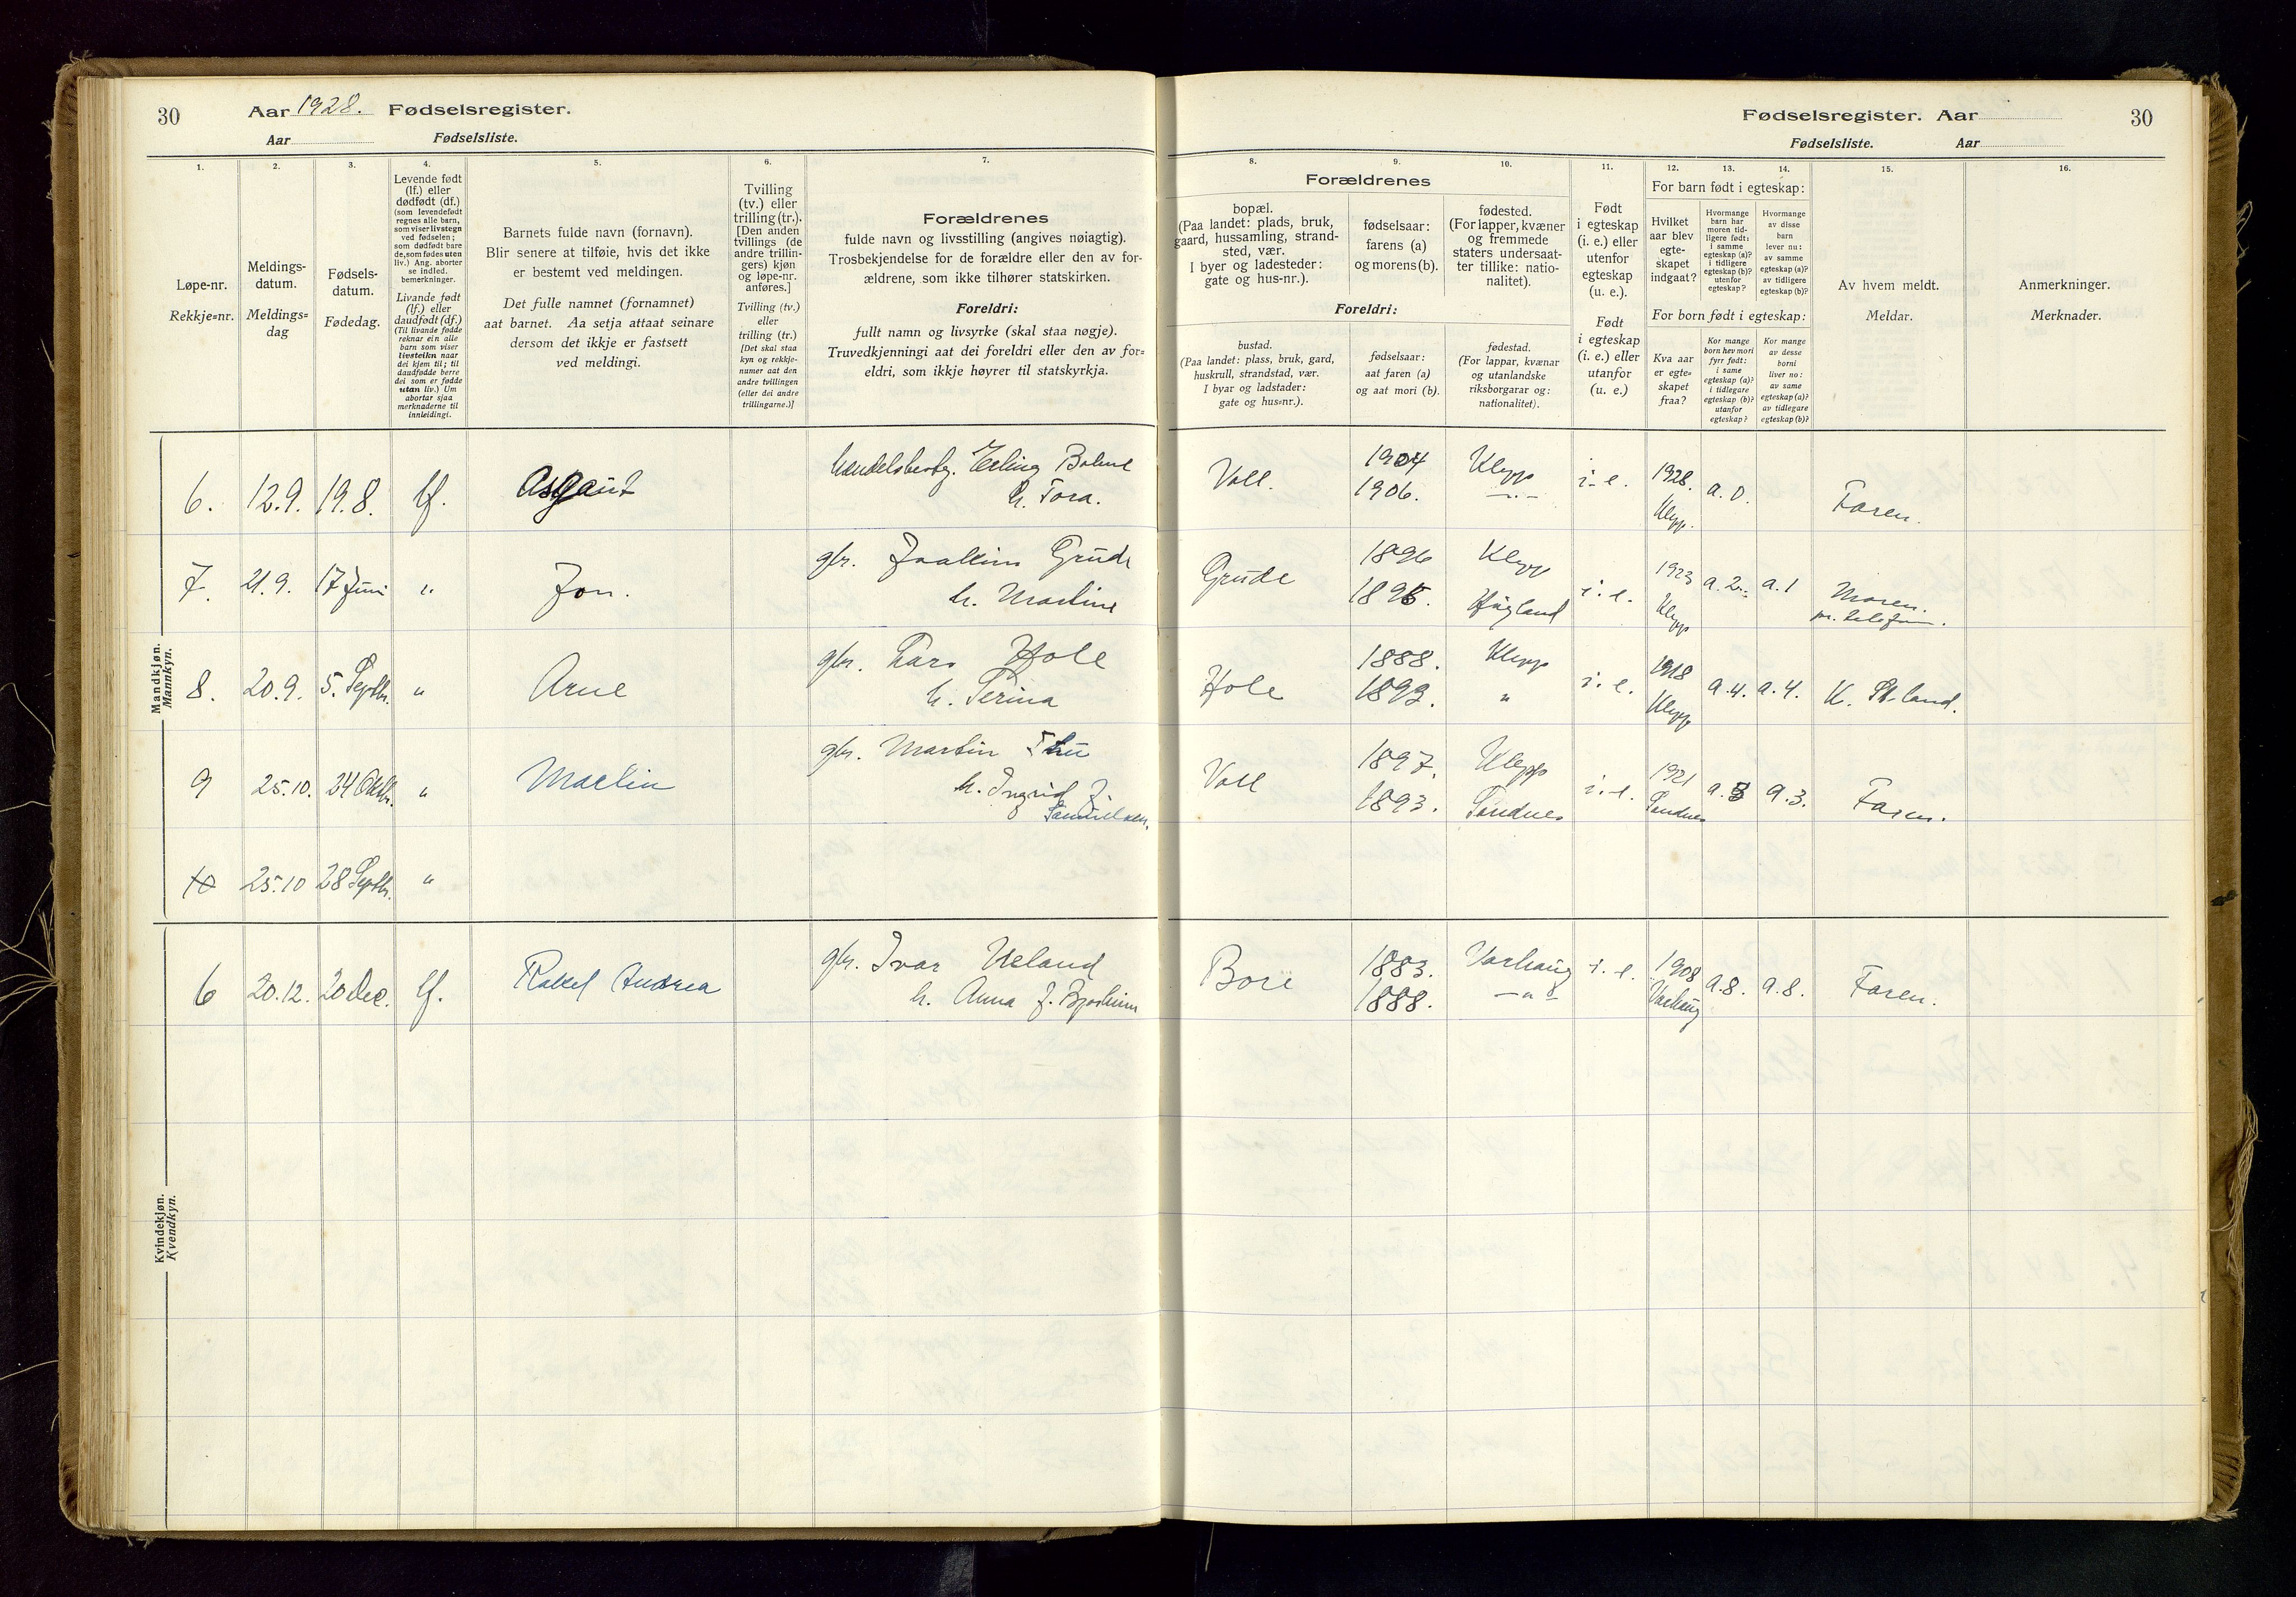 30 Aar 1928. Fødselsregister.
Aar Fødselsliste.
Fødselsregister. Aar 30
Fødselsliste. Aar
1.
Løpe-nr.
Rekkje=nr.
2.
Meldings-
datum.
Meldings=
dag
3.
Fødsels-
datum.
Fødedag.
4.
Levende født
(lf.) eller
dødfødt (df.)
(som levendefødt
regnes alle barn,
som viser livstegn
ved fødselen;
som dødfødt bare
de, som fødes uten
liv.) Ang. aborter
se indled.
bemerkninger.
Livande født
(lf.) eller
daudfødt (df.)
(Til livande fødde
reknar ein alle
barn som viser
livsteikn naar
dei kjem til; til
daudfødde berre
dei som er fødde
utan liv.) Um
abortar sjaa
merknaderne til
innleidingi.
5.
Barnets fulde navn (fornavn).
Blir senere at tilføie, hvis det ikke
er bestemt ved meldingen.
Det fulle namnet (fornamnet)
aat barnet. Aa setja attaat seinare
dersom det ikkje er fastsett
ved meldingi.
6.
Tvilling
(tv.) eller
trilling (tr.).
[Den anden
tvillings (de
andre trillin-
gers) kjøn
og løpe-nr.
anføres.]
Tvilling (tv.)
eller
trilling (tr.)
[Det skal staa
kyn og rekkje-
numer aat den
andre tvillingen
(eller dei andre
trillingarne.)]
7.
Forældrenes
fulde navn og livsstilling (angives nøiagtig).
Trosbekjendelse for de forældre eller den av for-
ældrene, som ikke tilhører statskirken.
Foreldri:
fullt namn og livsyrke (skal staa nøgje).
Truvedkjenningi aat dei foreldri eller den av for=
eldri, som ikkje høyrer til statskyrkja.
8.
Forældrenes
bopæl.
(Paa landet: plads, bruk,
gaard, hussamling, strand-
sted, vær.
I byer og ladesteder:
gate og hus-nr.).
Foreldri:
bustad.
(Paa landet: plass, bruk, gard,
huskrull, strandstad, vær.
I byar og ladstader:
gate og hus=nr.).
9.
fødselsaar:
farens (a)
og morens (b).
fødselsaar:
aat faren (a)
og aat mori (b).
10.
fødested.
(For lapper, kvæner
og fremmede
staters undersaat-
ter tillike: natio-
nalitet).
fødestad.
(For lappar, kvænar
og utanlandske
riksborgarar og:
nationalitet).
11.
Født
i egteskap
(i. e.) eller
utenfor
egteskap
(u. e.).
Født
i egteskap
(i. e.) eller
utanfor
(u. e.)
12.
For barn født i egteskap:
Hvilket
aar blev
egte-
skapet
indgaat?
For born født i egteskap:
Kva aar
er egte=
skapet
fraa?
13.
Hvormange
barn har
moren tid-
ligere født:
i samme
egteskap (a)?
i tidligere
egteskap (b)?
utenfor
egteskap?
Kor mange
born hev mori
fyrr født:
i same
egteskap (a)?
i tidlegare
egteskap (b)?
utanfor
egteskap?
14.
Hvormange
av disse
barn
lever nu:
av samme
egteskap (a)?
av tidligere
egteskap (b)?
Kor mange
av desse
borni
liver no:
av same
egteskap (a)?
av tidlegare
egteskap (b)?
15.
Av hvem meldt.
Meldar.
16.
Anmerkninger.
Merknader.
Mandkjøn.
Mannkyn.
6. 12.9. 19.8. lf. Asgaut Handelsbesty. Erling Bohne Voll. 1904 Klepp i. e. 1928. a. 0. Faren.
h. Tora. 1906. —"— Klepp.
7. 21.9. 17 Juni " Jon. gbr. Joakim Grude Grude 1896 Klepp i. e. 1923 a. 2. a. 1 Moren.
h. Martine 1895. Høgland Klepp pr. telefon.
8. 20.9. 5. Septbr. " Arne gbr. Lars Hole Hole 1888. Klepp i. e. 1918 a. 4. a. 4.
h. Serina 1893. " Klepp
9 25.10. 24 Oktbr. " Martin gbr. Martin Thu Voll 1897. Klepp i. e. 1921 a. 3 a. 3. Faren.
h. Ingrid f. 1893. Sandnes Sandnes
Samuelsen.
10 25.10 28 Septbr. "
Kvindekjøn.
Kvendkyn.
6 20.12. 20 Dec. lf. Rakel Andrea gbr. Ivar Ueland Bore 1883. Varhaug i. e. 1908 a. 8. a. 8. Faren.
h. Anna f. Bjorheim 1888. —"— Varhaug